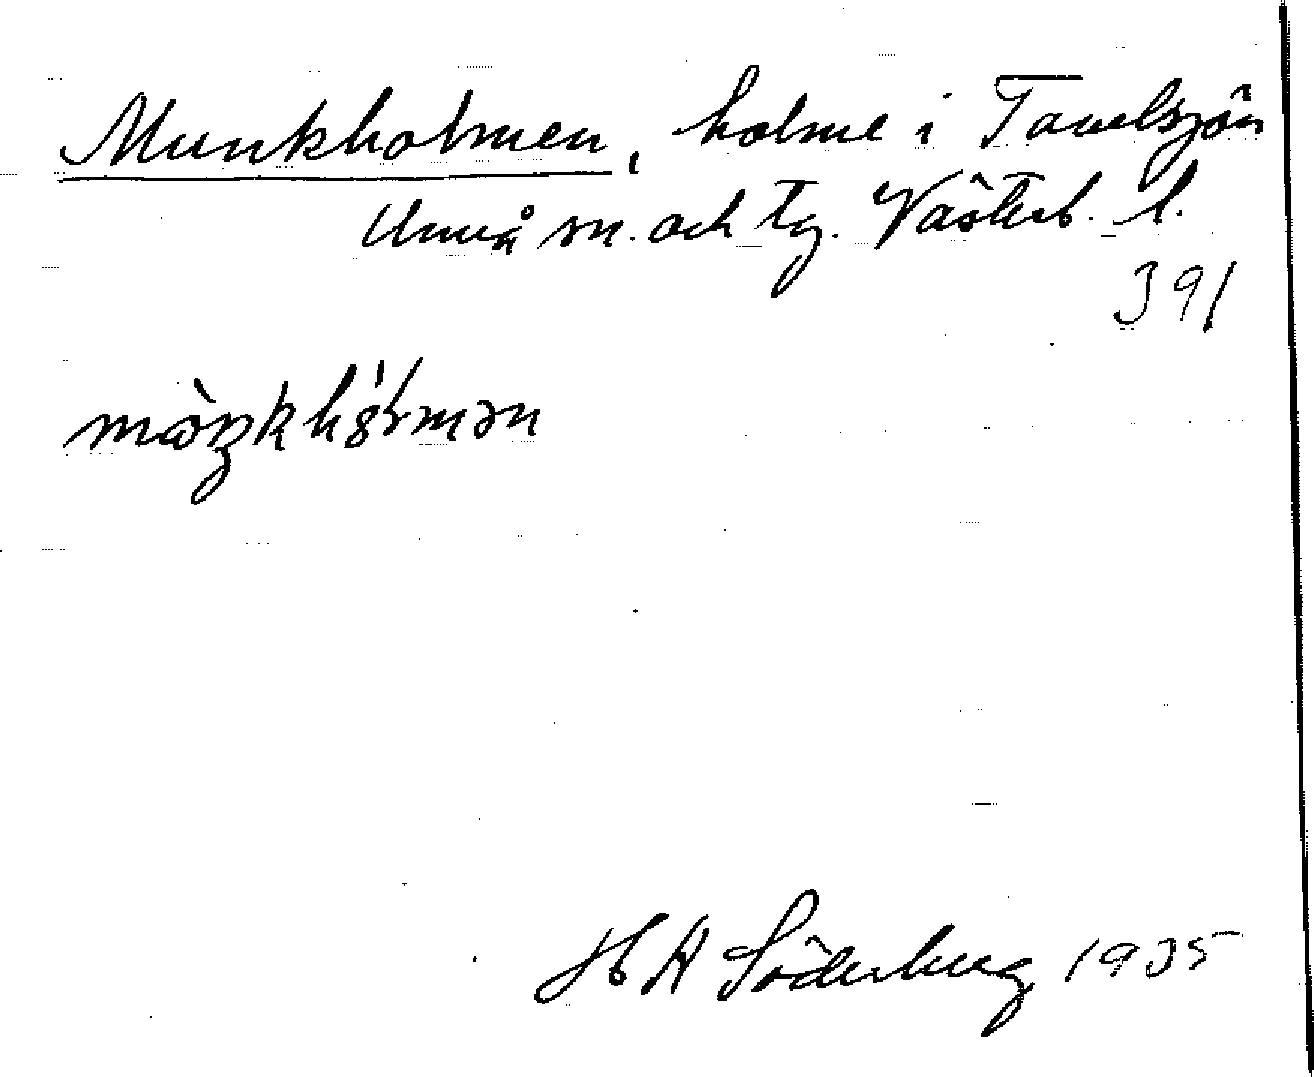 Munkholmen, holme i Tavelsjön
Umeå sn. och tg. Västerb. l.
391
HA Söderberg 1935